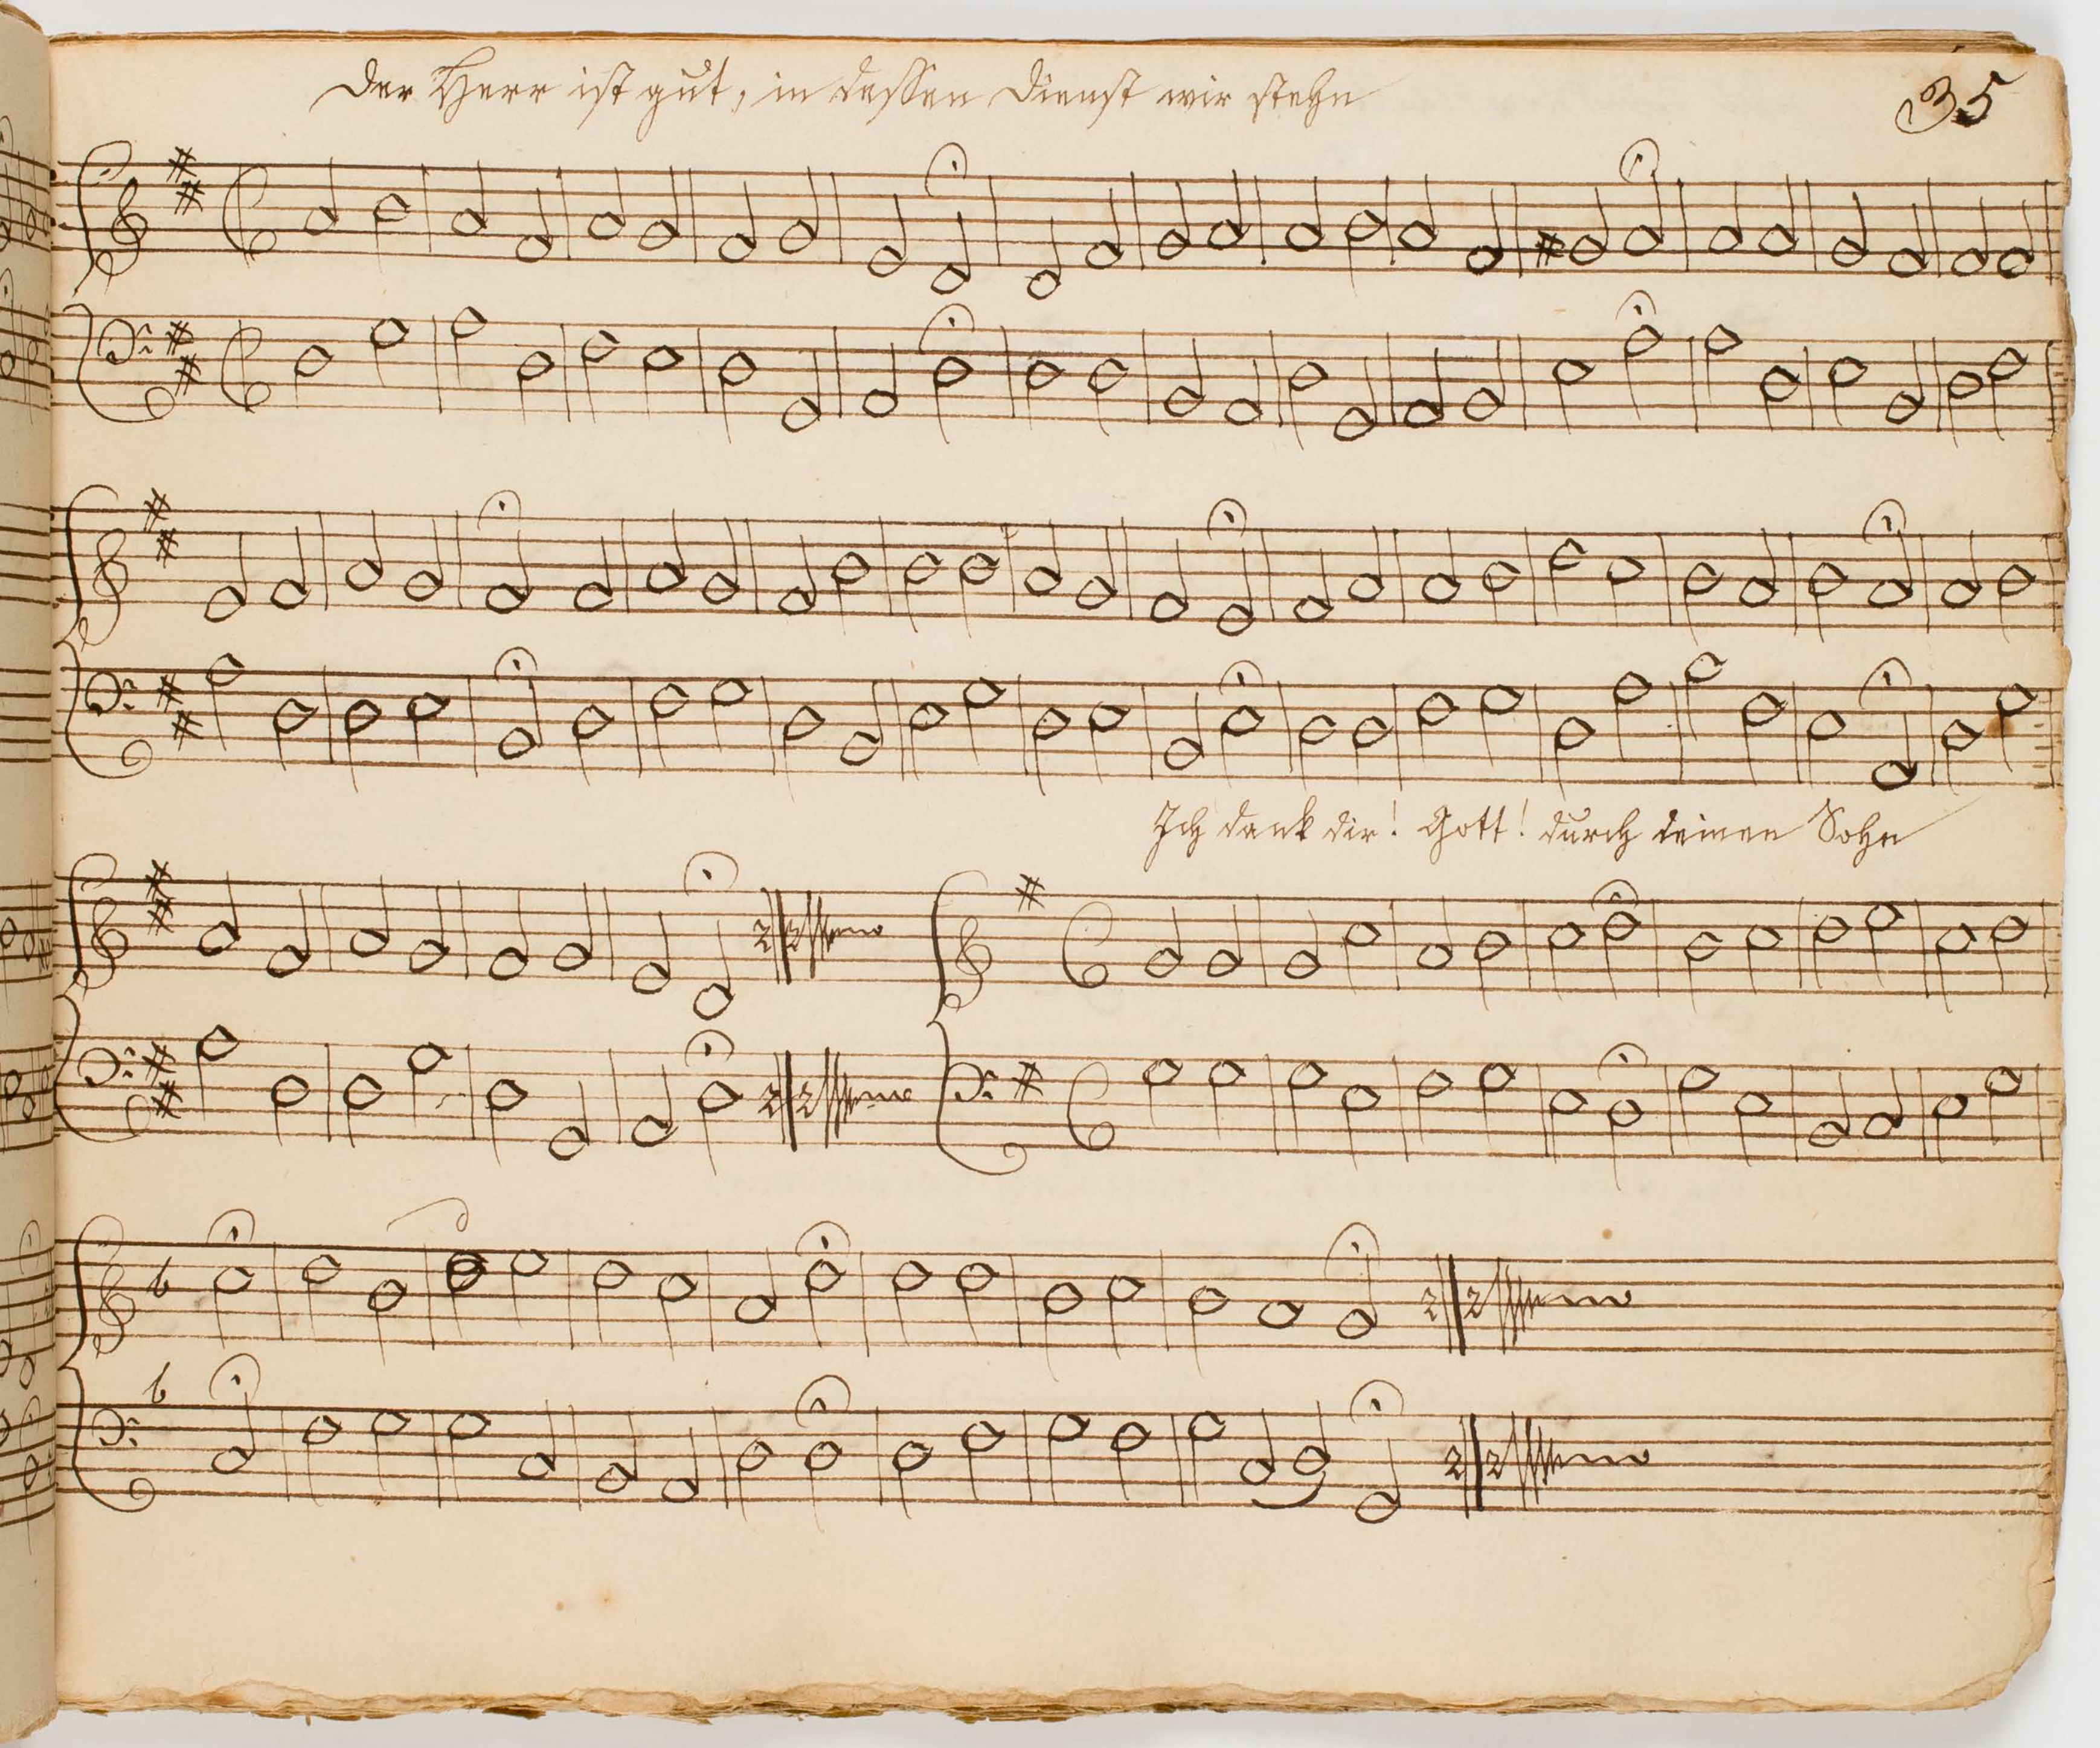 Der Herr ist gut, in dessen Dienst wir stehn
35
Ich dank dir! Gott! durch deinen Sohn